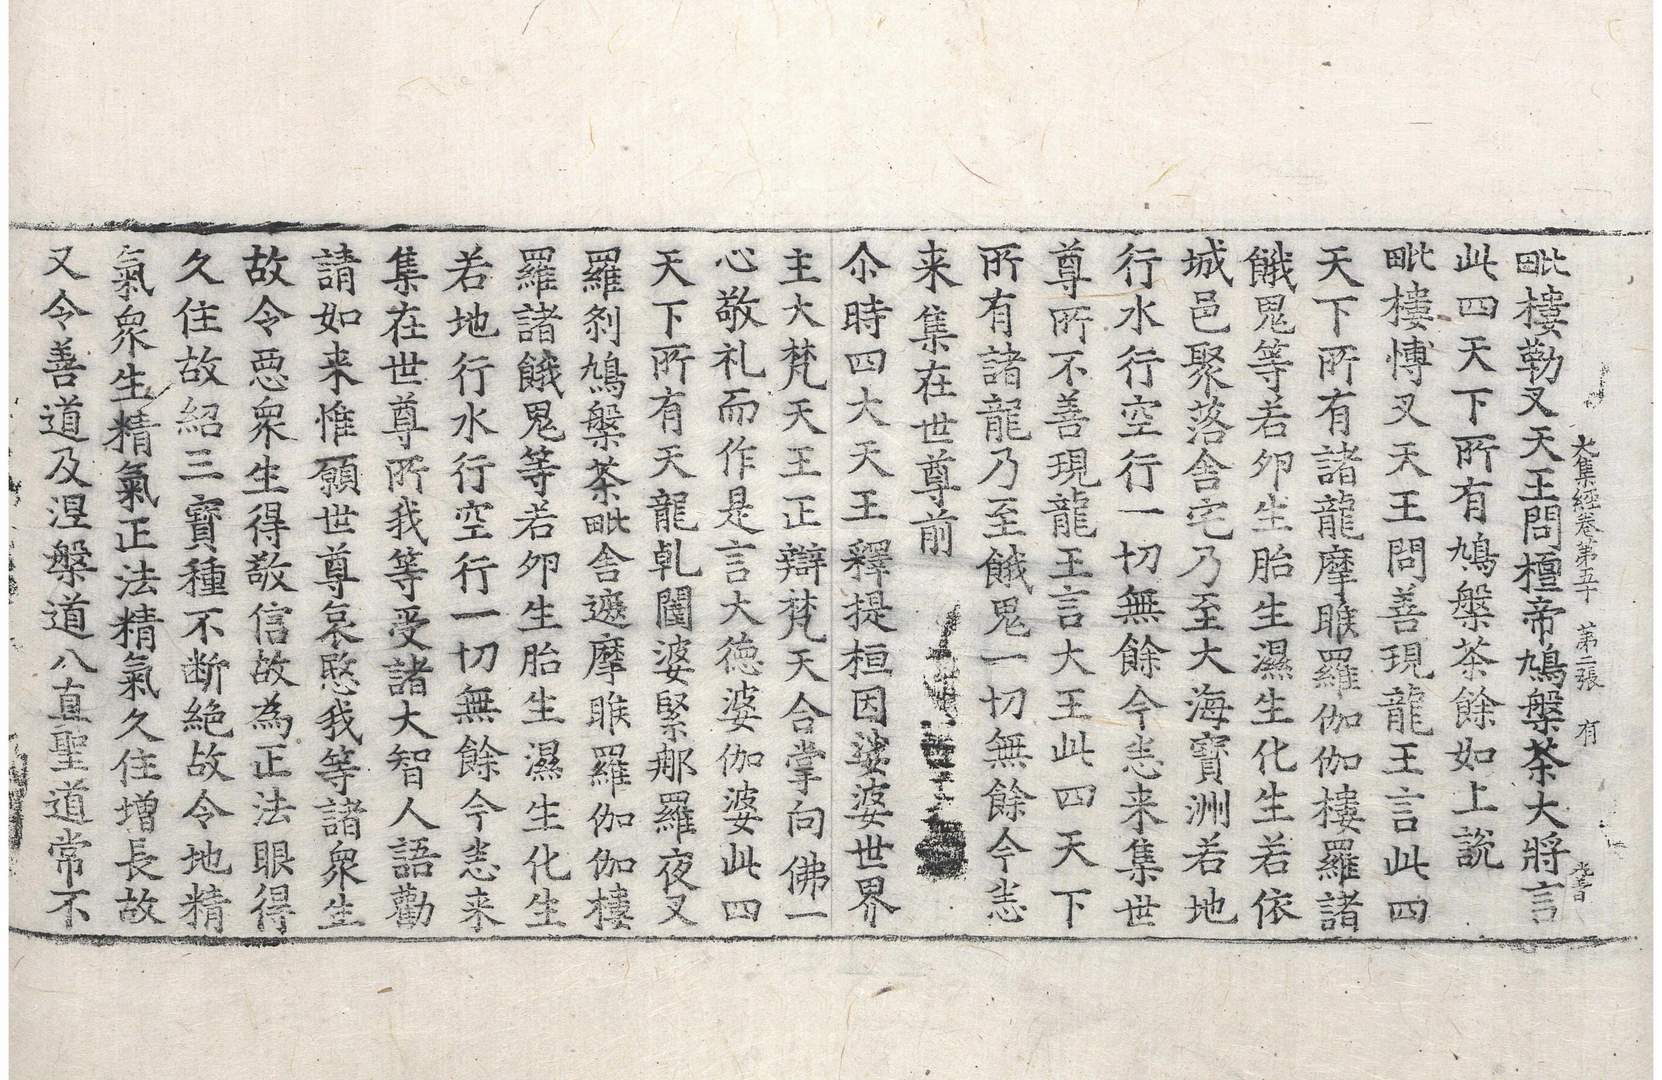 大集經卷第五十 第二張 有
毗樓勒叉天王問檀帝鳩槃茶大將言
此四天下所有鳩槃茶餘如上說
毗樓愽叉天王問善現龍王言此四
天下所有諸龍摩睺羅伽伽樓羅諸
餓鬼等若卵生胎生濕生化生若依
城邑聚落舍宅乃至大海寶洲若地
行水行空行一切無餘今悉来集世
尊所不善現龍王言大王此四天下
所有諸龍乃至餓鬼一切無餘今悉
来集在世尊前
尒時四大天王釋提桓因娑婆世界
主大梵天王正辯梵天合掌向佛一
心敬礼而作是言大德婆伽婆此四
天下所有天龍乹闥婆緊那羅夜叉
羅剎鳩槃茶毗舍遮摩睺羅伽伽樓
羅諸餓鬼等若卵生胎生濕生化生
若地行水行空行一切無餘今悉来
集在世尊所我等受諸大智人語勸
請如来惟願世尊哀愍我等諸衆生
故令惡衆生得敬信故為正法眼得
久住故紹三寶種不断絶故令地精
氣衆生精氣正法精氣久住增長故
又令善道及涅槃道八直聖道常不